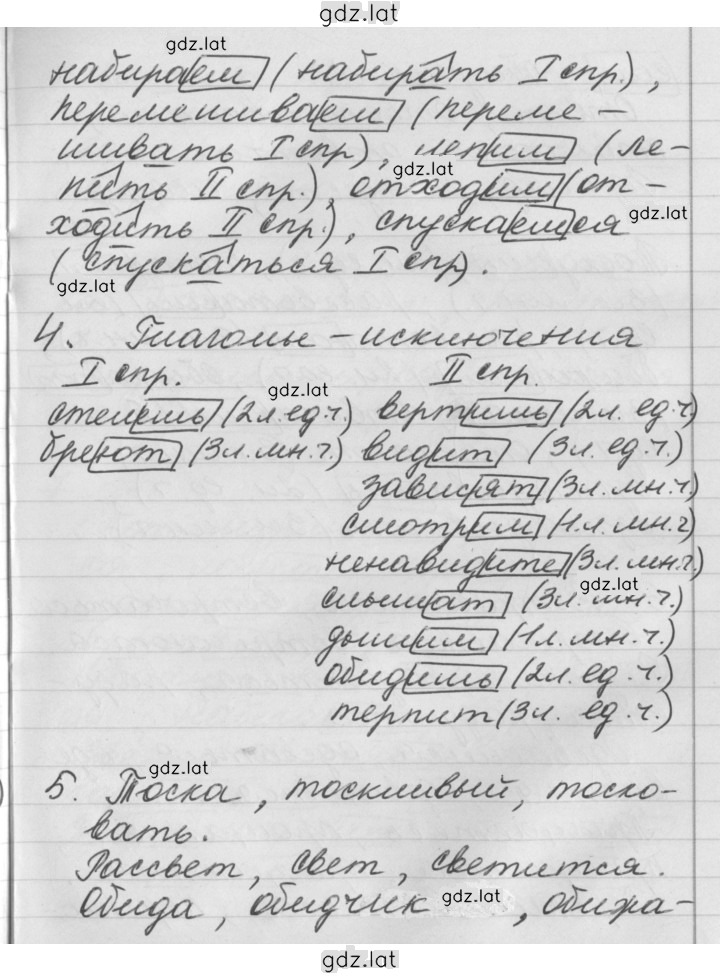 gdz.lat
gdz.lat
набираем (набирать I спр.),
перемешиваем (переме-
шивать I спр), лепим (ле-
gdz.lat
пить II спр.), отходим (от-
gdz.lat
ходить II спр.), спускаемся
(спускаться I спр).
gdz.lat
4. Глаголы-исключения
I спр. II спр.
gdz.lat
стелешь (2л. ед.ч.) вертишь (2л. ед.ч)
бреют (3л. мн.ч.) видит (3л. ед.ч.)
зависят (3л. мн.ч.)
смотрим (1л. мн.ч)
ненавидите (3л. мн.ч.)
gdz.lat
слышат (3л. мн.ч.)
дышим (1л. мн.ч.)
обидишь (2л. ед.ч.)
терпит (3л. ед.ч.)
gdz.lat
5. Тоска, тоскливый, тоско-
вать.
Рассвет, свет, светится.
Обида, обидчик, обижа-
gdz.lat
gdz.lat